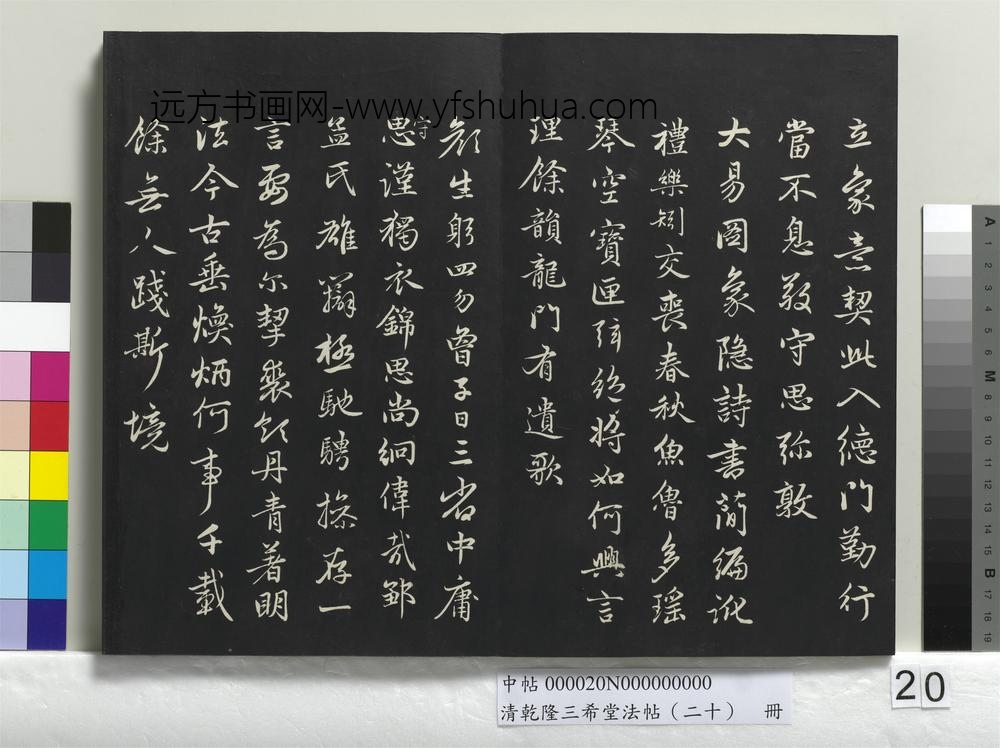 立象意契此入德門勤行
當不息敬守思弥敦
大易图象隐詩書簡編訛
禮樂矧交喪春秋魚魯多瑶
琴空寶匣弦絕將如何興言
理餘韻龍門有遺歌
顔生躬四勿曾子日三省中庸
思謹獨衣錦思尚絅偉哉鄒
孟氏雄辯極馳騁操存一
言要為尔挈裘領丹青著明
法今古垂煥炳何事千載
餘無人踐斯境
远方书画网-www.yfshuhua.com
中帖 000020N000000000
清乾隆三希堂法帖（二十） 冊
20
A 1 2 3 4 5 6 M 8 9 10 11 12 13 14 15 B 17 18 19